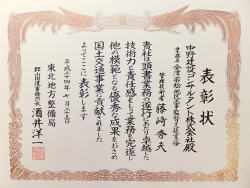 表彰状
中野建設コンサルタント株式会社殿
管理技術者 藤崎秀夫
貴社は頭書業務の遂行にあたり卓越した
技術力と責任感をもって業務を完遂し
他の模範になる優秀な成果をおさめ
国土交通事業に貢献されました
よってここに表彰します
平成二十四年七月二十三日
東北地方整備局
郡山国道事務所長 酒井洋一